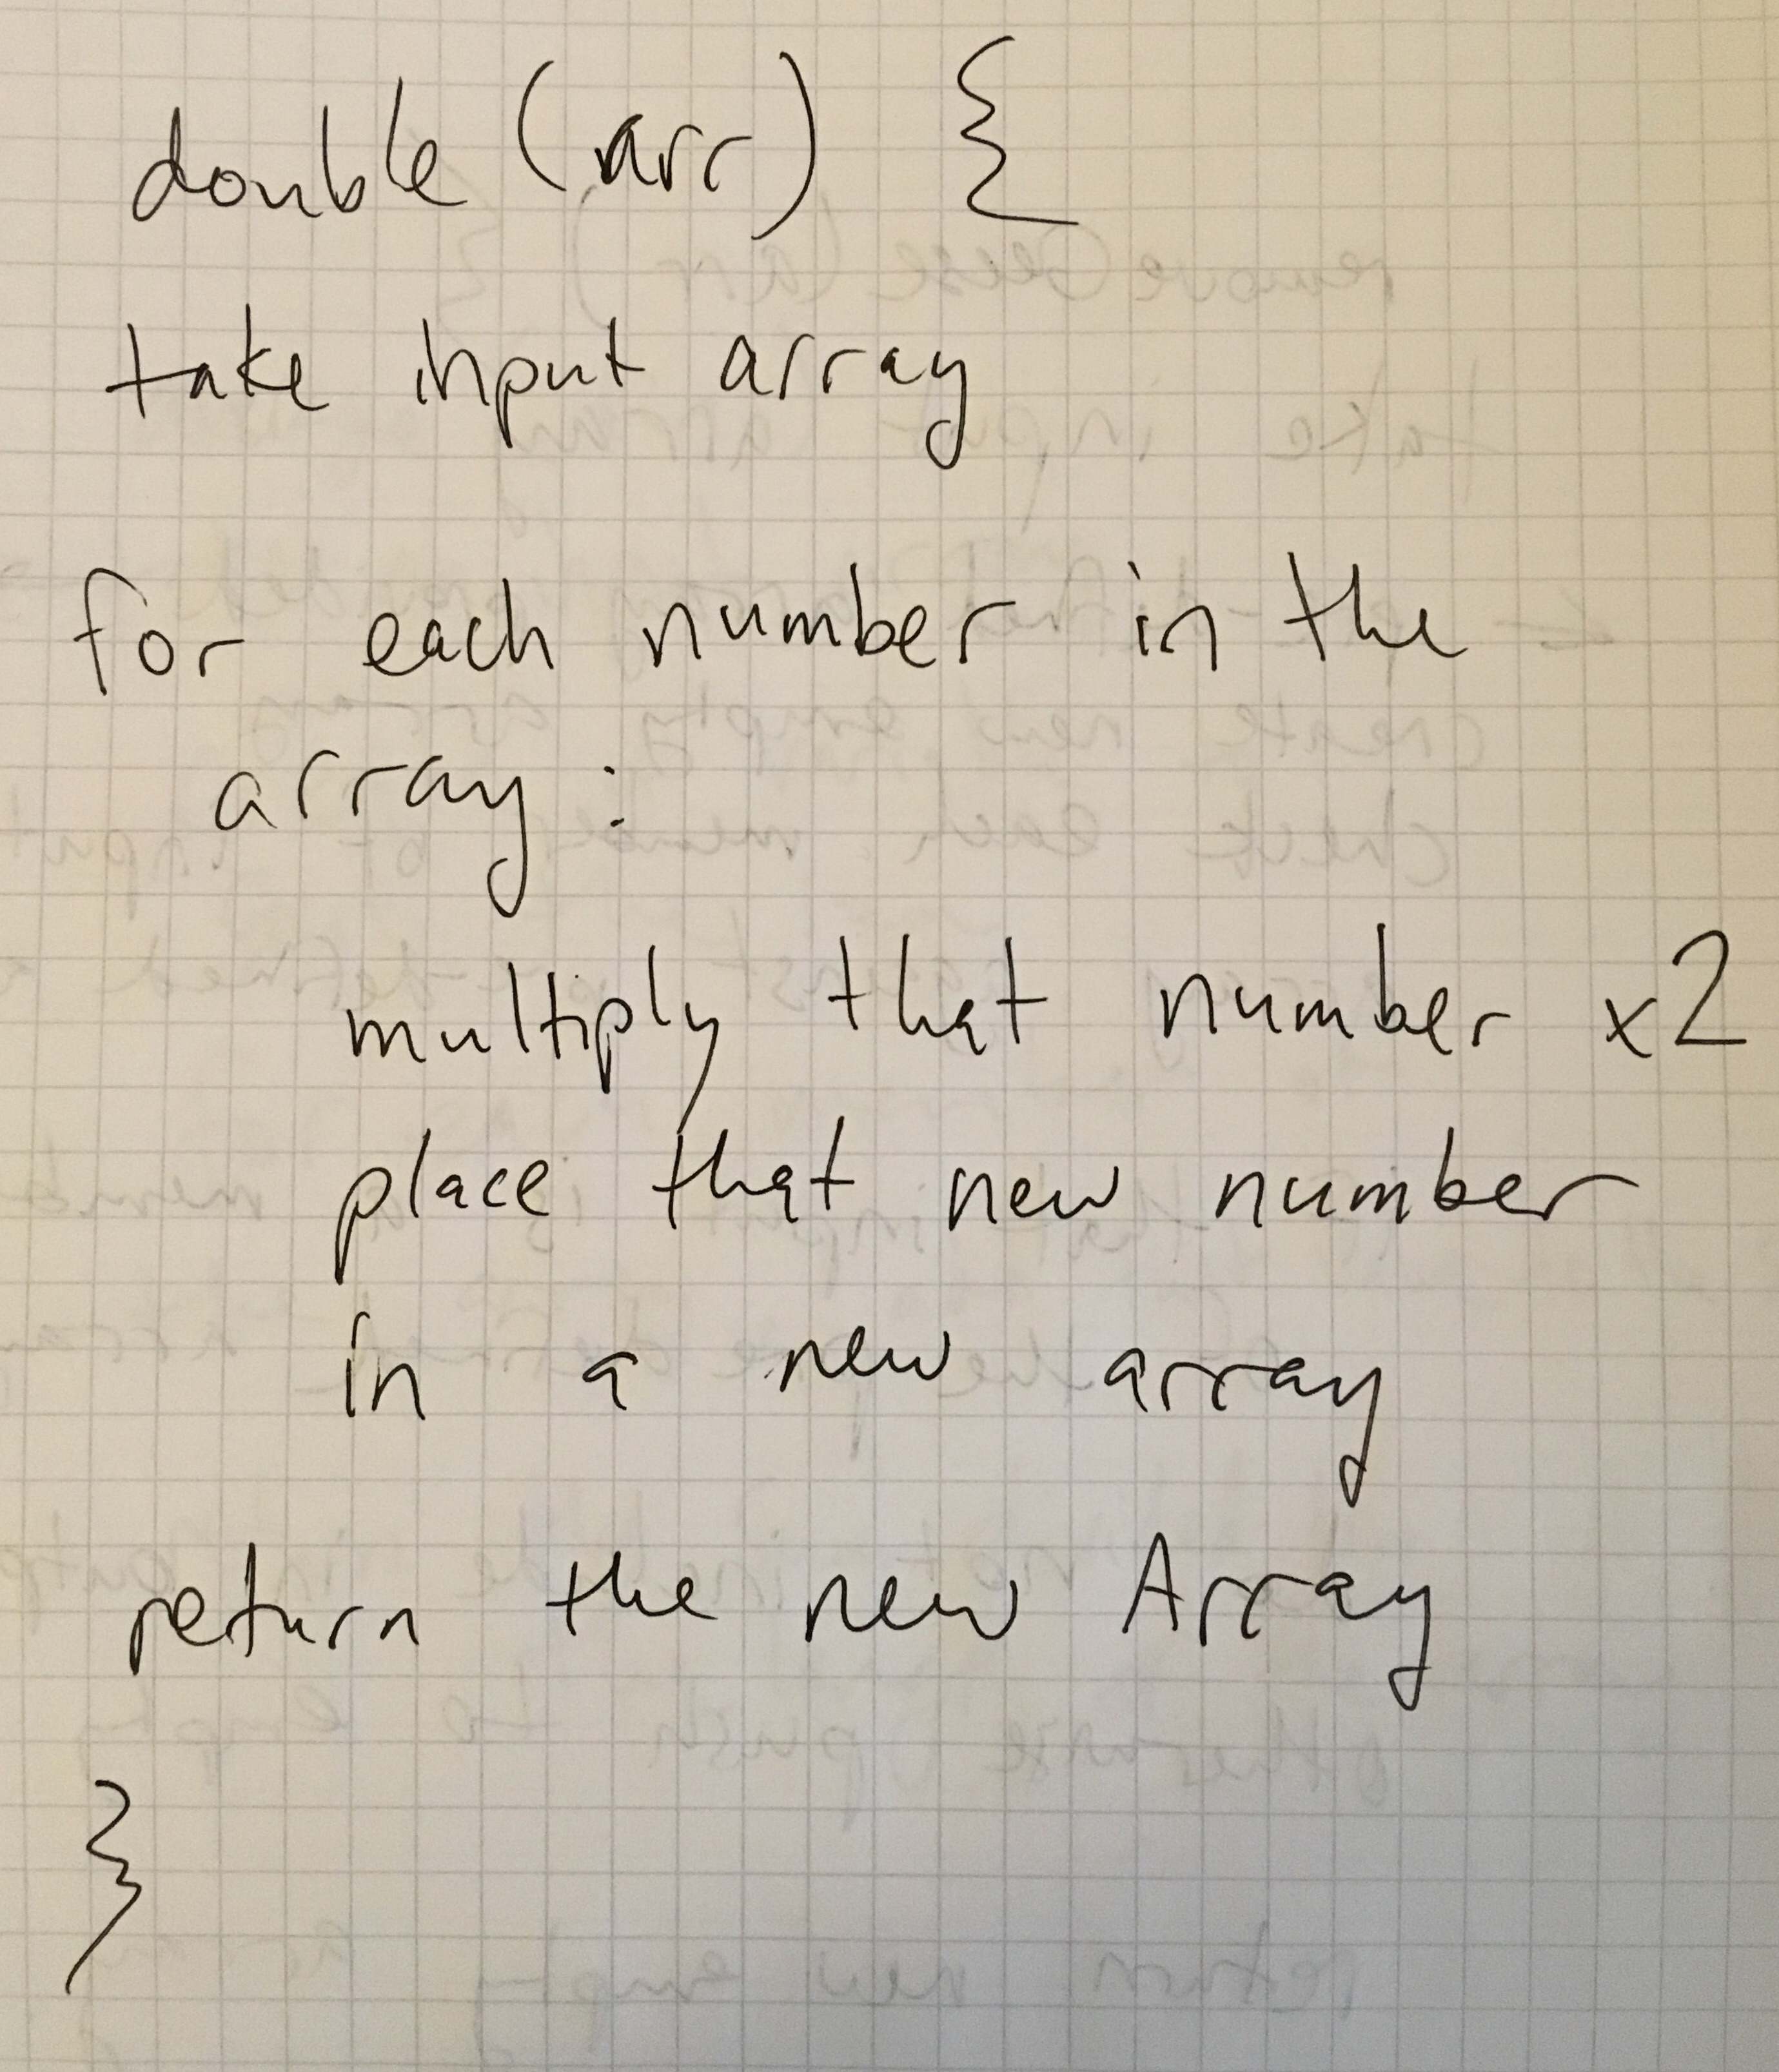 double (arr) {
take input array
for each number in the
array:
multiply that number x2
place that new number
in a new array
return the new Array
}